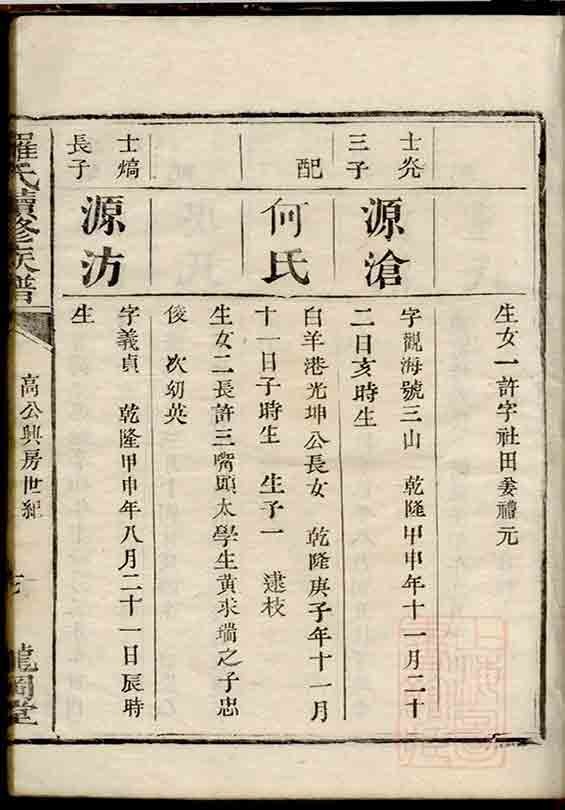 生女一許字社田姜禮元
士炎
三子
源滄
字觀海號三山 乾隆甲申年十一月二十
二日亥時生
配
何氏
白羊港光坤公長女 乾隆庚子年十一月
十一日子時生 生子一 逮枝
生女二長許三嘴頭太學生黃求瑞之子忠
俊 次幼英
士熇
長子
源汸
字義貞 乾隆甲申年八月二十一日辰時
生
羅氏續修族譜
高公興房世紀
龍岡堂